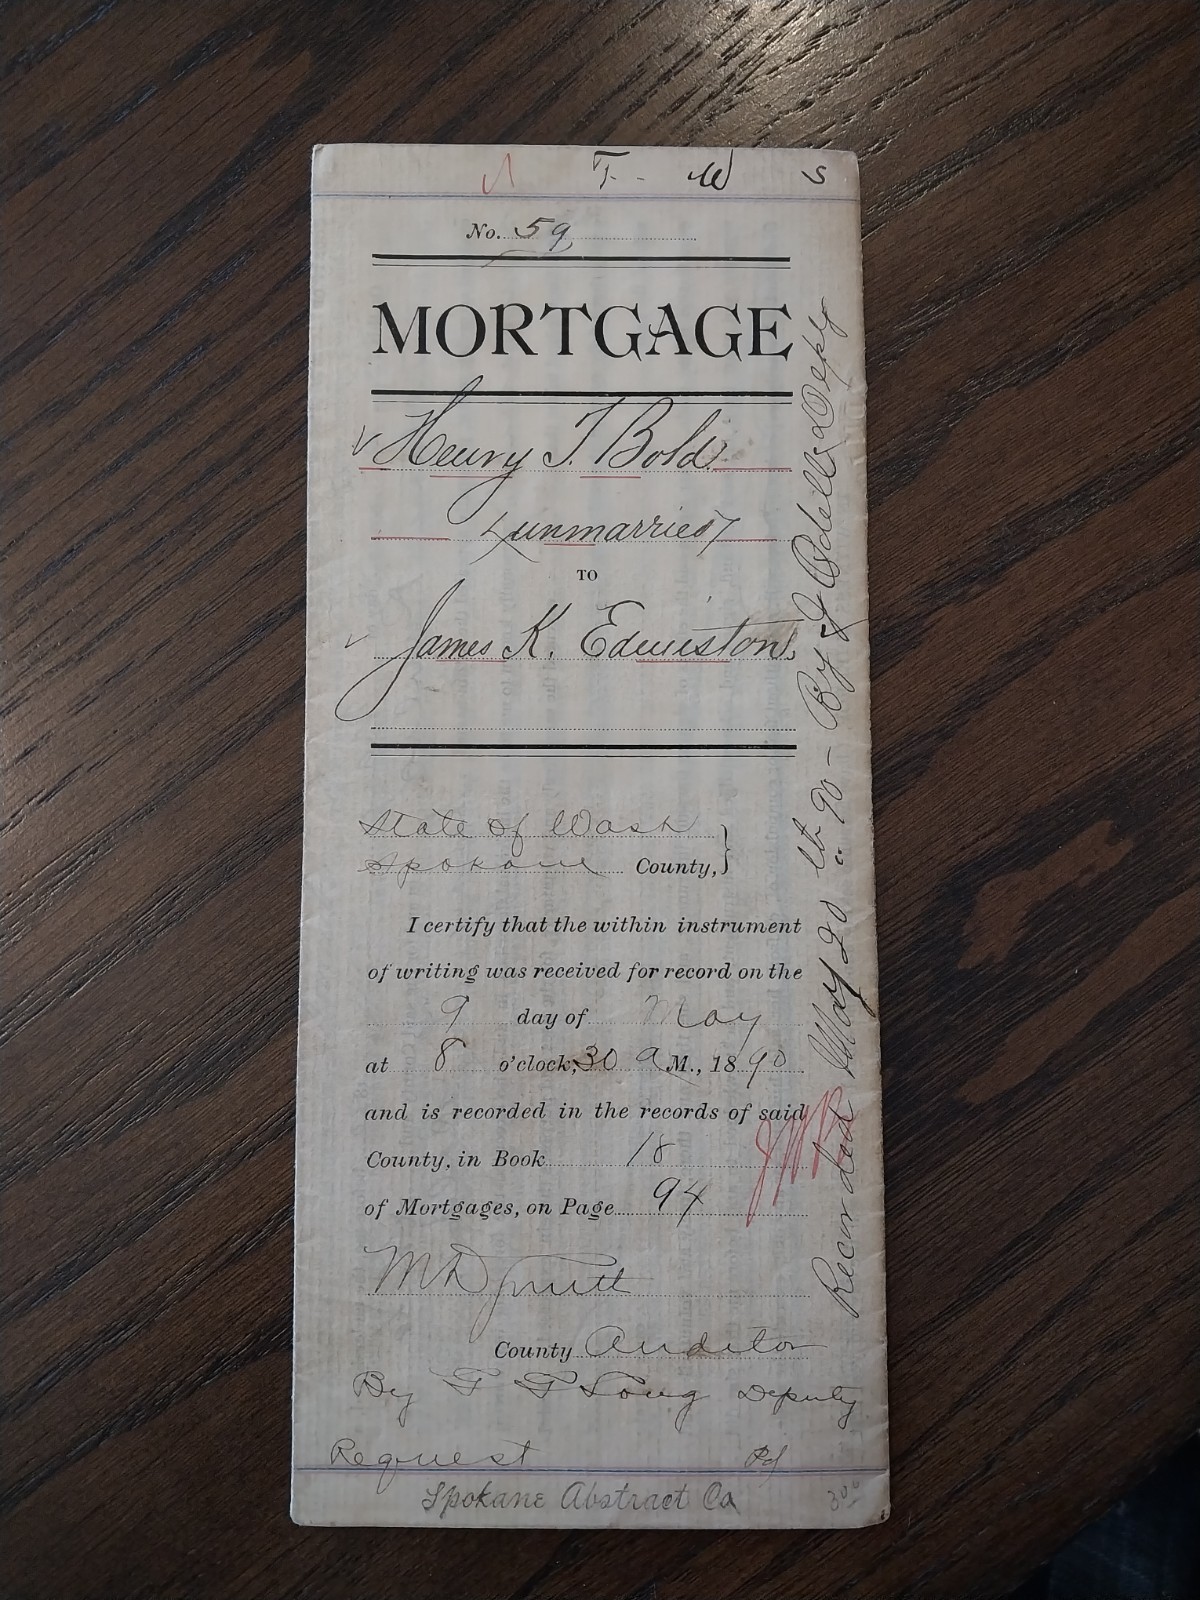 T. W S
No. 59,
MORTGAGE
Henry T. Bold
(unmarried)
TO
James K. Edmiston,
State of Wash
Spokane County,}
I certify that the within instrument
of writing was received for record on the
9 day of May
at 8 o'clock, 30 A M., 1890
and is recorded in the records of said
County, in Book 18
of Mortgages, on Page 94
County Auditor
By F F Long Deputy
Request Pd
Spokane Abstract Co 300
Recorded May 20 90 - By Depty